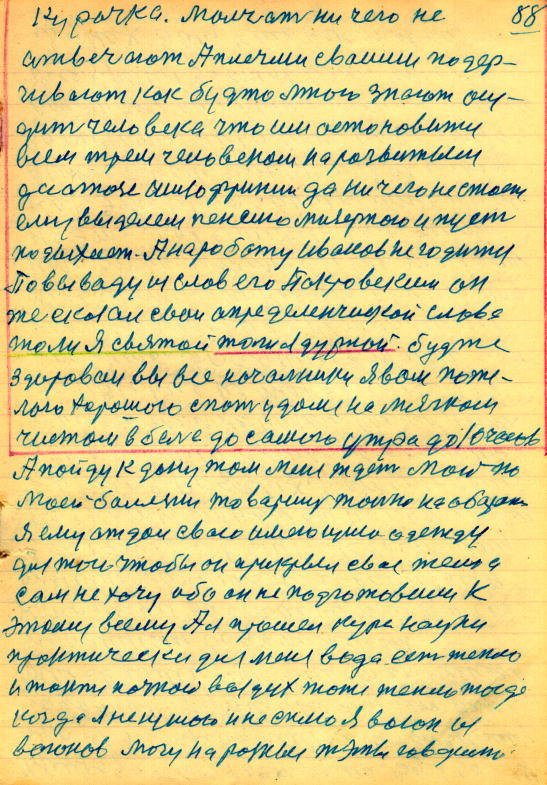 Курочка. Молчат ничего не 88
отвечают А плечми своими подер-
гивают как будто много знают осу-
дит человека что им остановити
всем трем человеком на развитыи
до етого шизофринии да ничего не стоет
ему выделем пенсию мизерною и пуст
подыхает. А на роботу Иванов не годити
По выводу и слов его Покровским он
же сказал свои определенческой слова
толи Я святой толи дурной. Будте
здоровы вы все началники Я вам поже-
лаю хорошого спат и дома на мягком
чистом в беле до самого утра до 10 часов
А пойду к дому там мене ждет мой по
моей болезни товарищ только на обязан
Я ему отдам свою имеющию одежду
для того чтобы он прикрыл свое тело а
сам не хочу ибо он не подготовлен к
этому всему А я прошел курс науки
практически для мене вода ест тепло
и такти ночной воздух тоже тепло тогда
когда Я не кушаю и не сплю Я вагон из
вагонов могу на разные темы говорить